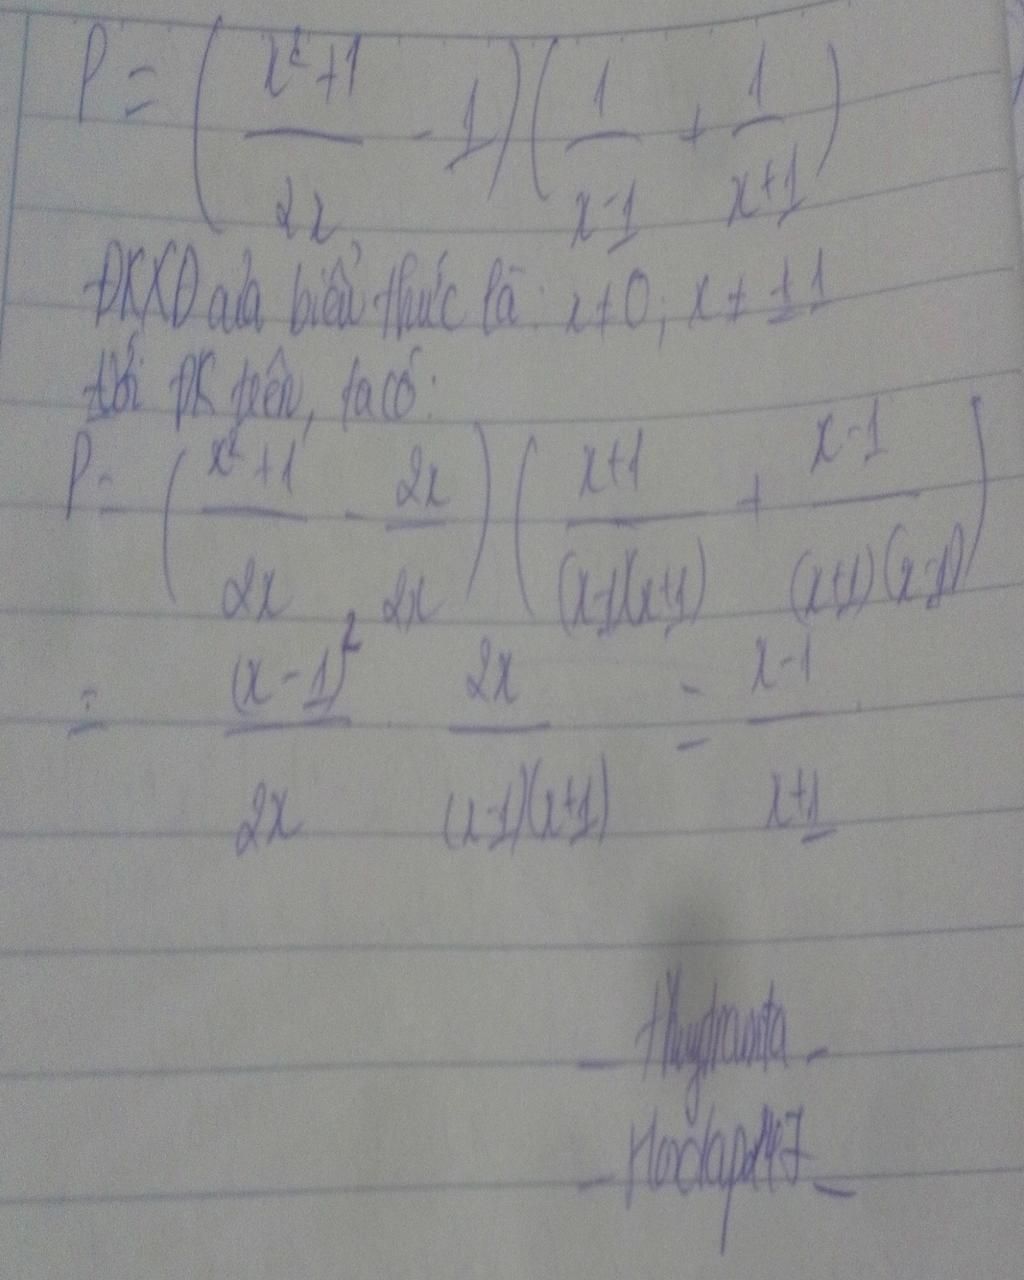 P = ( x²+1 / 2x - 1 ) ( 1 / x-1 + 1 / x+1 )
ĐKXĐ của biểu thức là: x≠0; x ≠ ±1
Với ĐK trên, ta có:
P = ( x²+1 / 2x - 2x / 2x ) ( x+1 / (x-1)(x+1) + x-1 / (x+1)(x-1) )
= (x-1)² / 2x . 2x / (x-1)(x+1) = x-1 / x+1
- thuytranta -
- Hoidap247 -